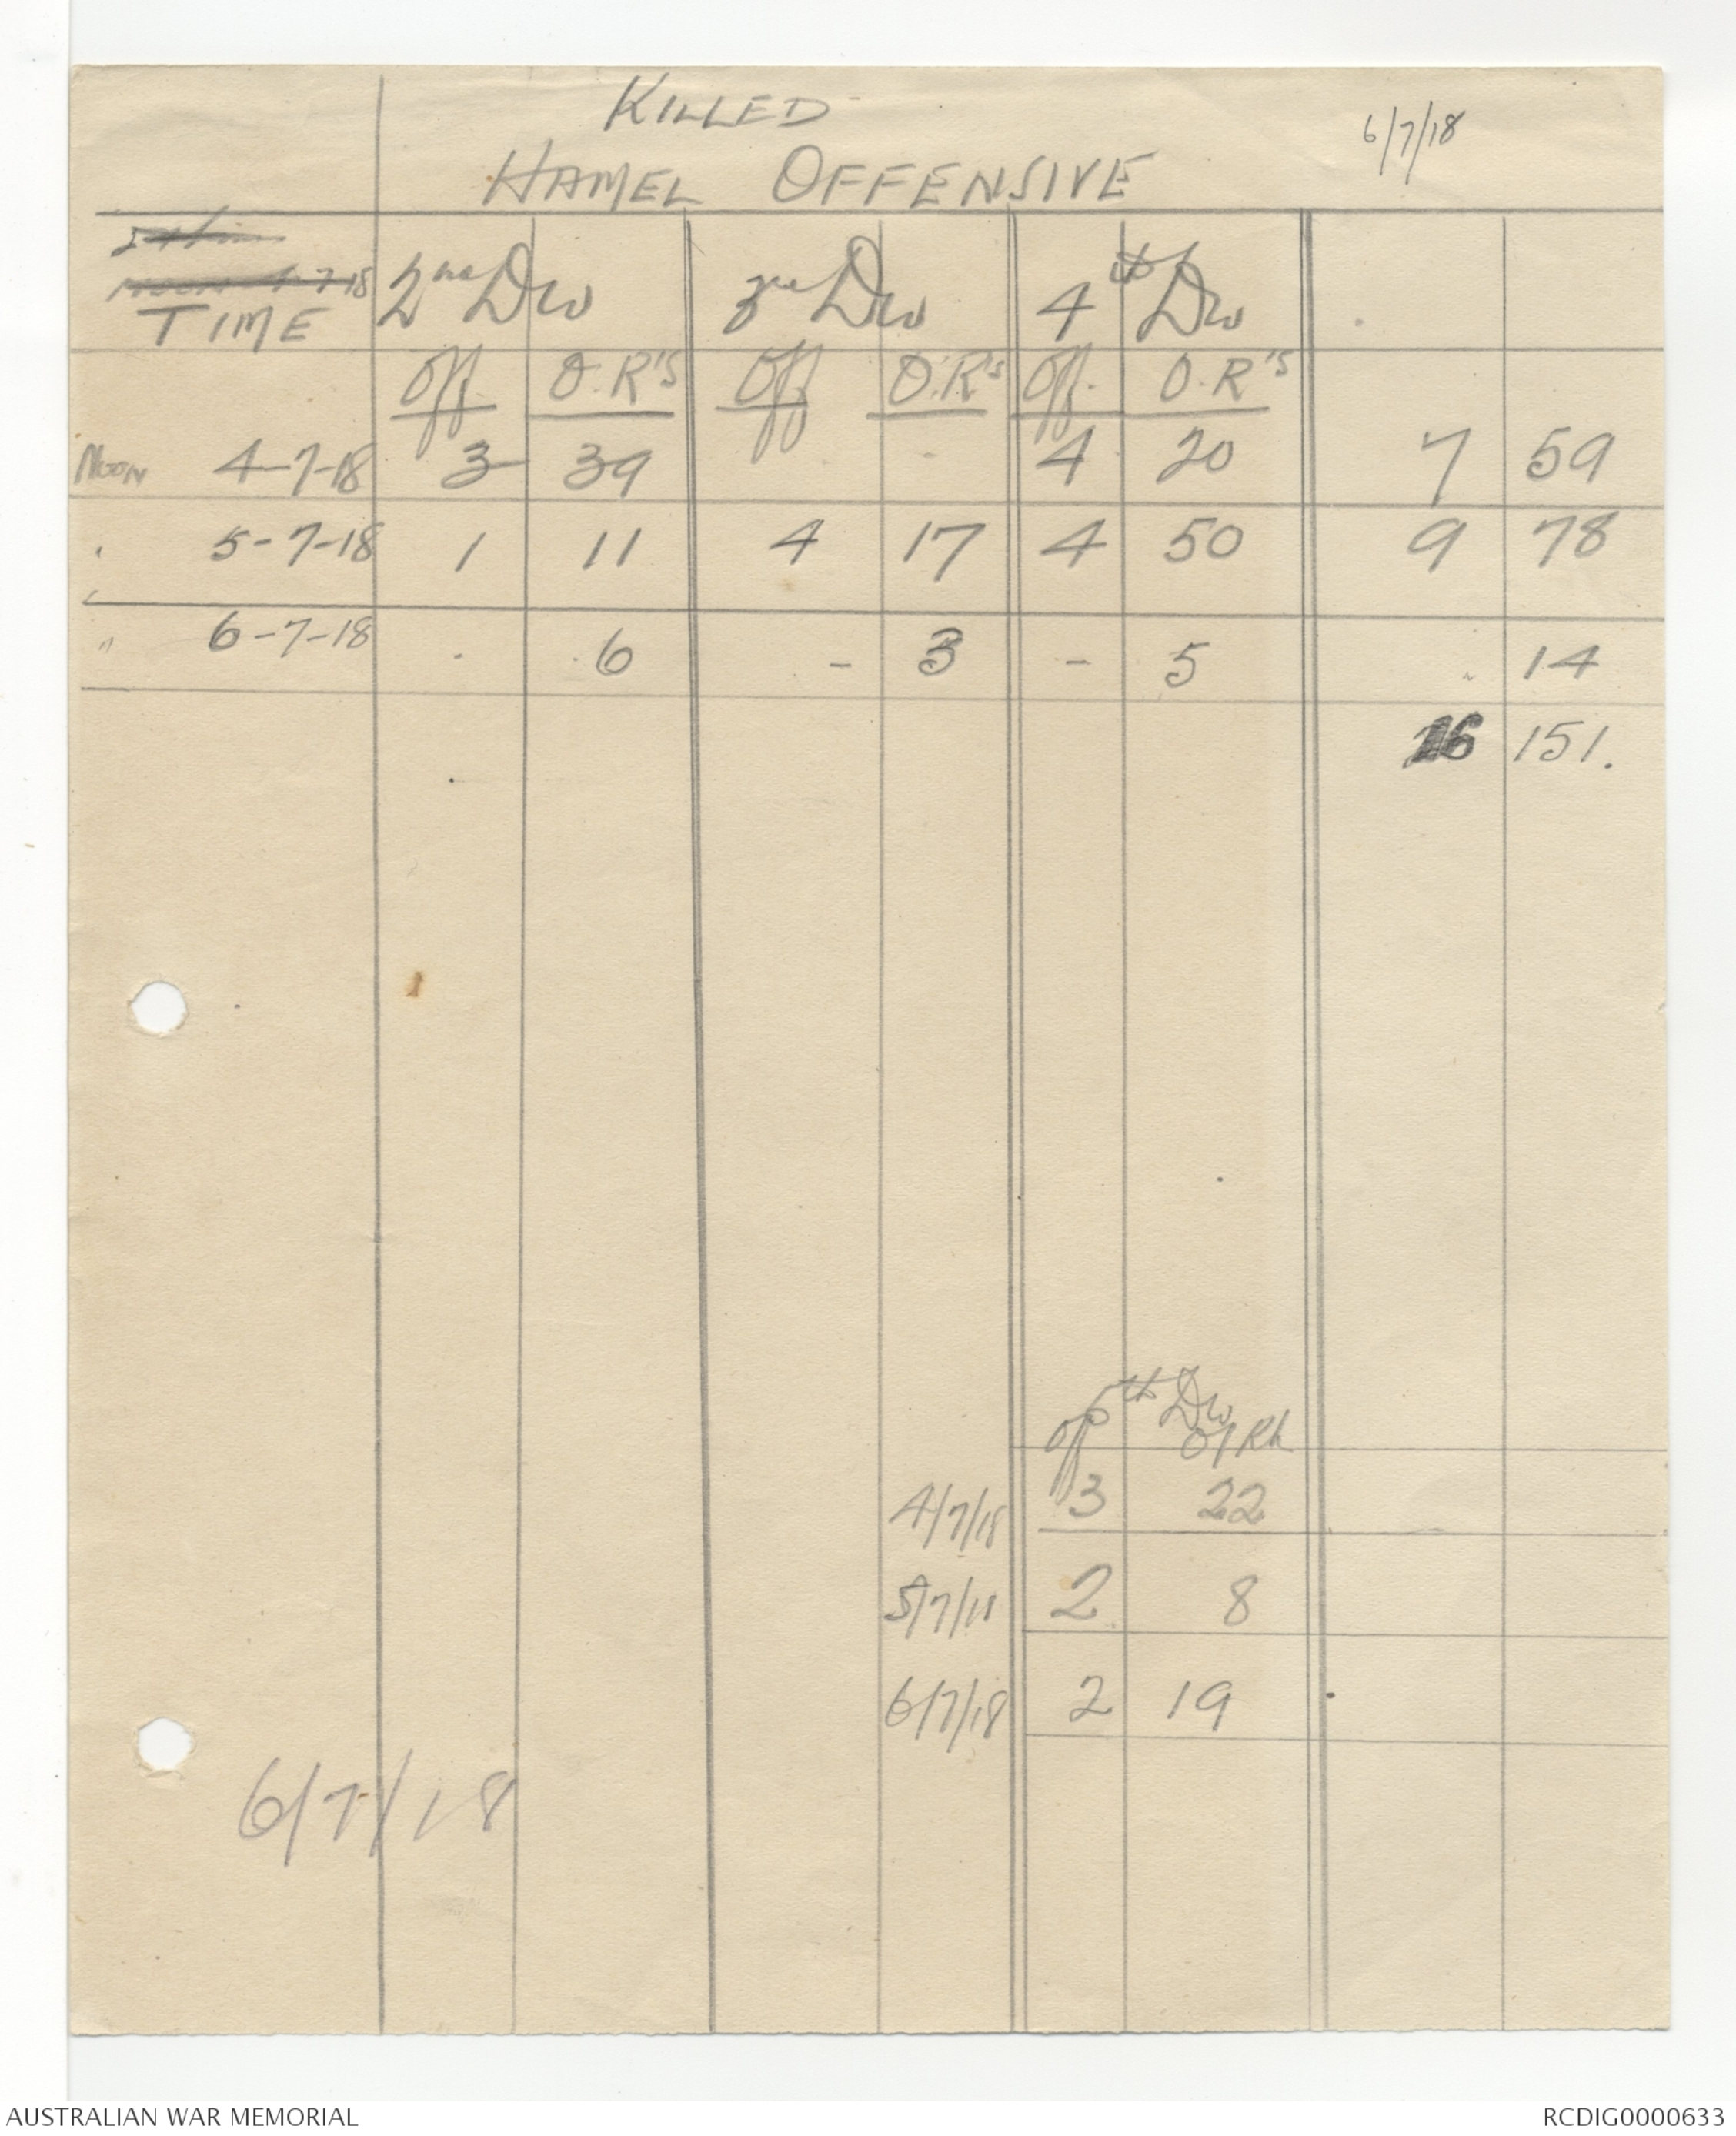 KILLED
6/7/18
HAMEL OFFENSIVE
noon 4-7-18
TIME 2nd Div 3rd Div 4th Div
Off. O.R'S Off O.R's Off. O.R'S
Noon 4-7-18 3 39 4 20 7 59
" 5-7-18 1 11 4 17 4 50 9 78
" 6-7-18 - 6 - 3 - 5 " 14
16 151.
5th Div
Off O/Rk
4/7/18 3 22
5/7/18 2 8
6/7/18 2 19
6/7/18
AUSTRALIAN WAR MEMORIAL RCDIG0000633